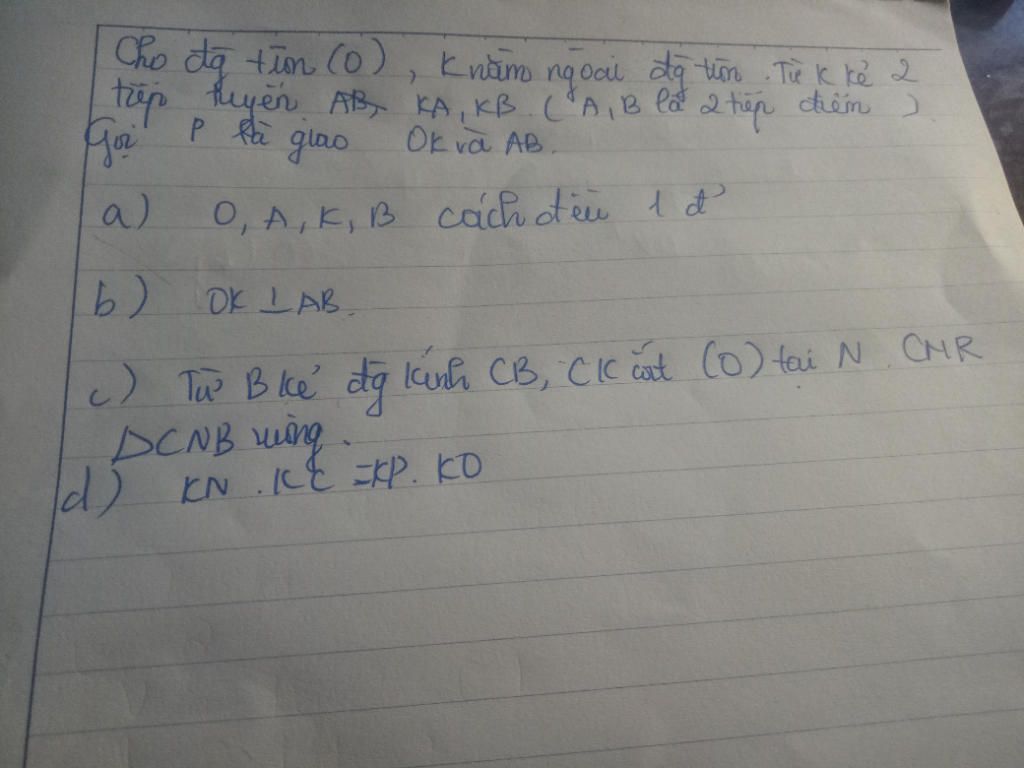 Cho đg tròn (O), K nằm ngoài đg tròn. Từ K kẻ 2
tiếp tuyến AB, KA, KB. (A, B là 2 tiếp điểm)
Gọi P là giao OK và AB.
a) O, A, K, B cách đều 1 đ'
b) OK ⊥ AB.
c) Từ B kẻ đg kính CB, CK cắt (O) tại N. CMR
ΔCNB vuông.
d) KN . KC = KP . KO